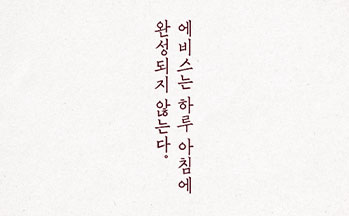 에비스는 하루 아침에
완성되지 않는다.